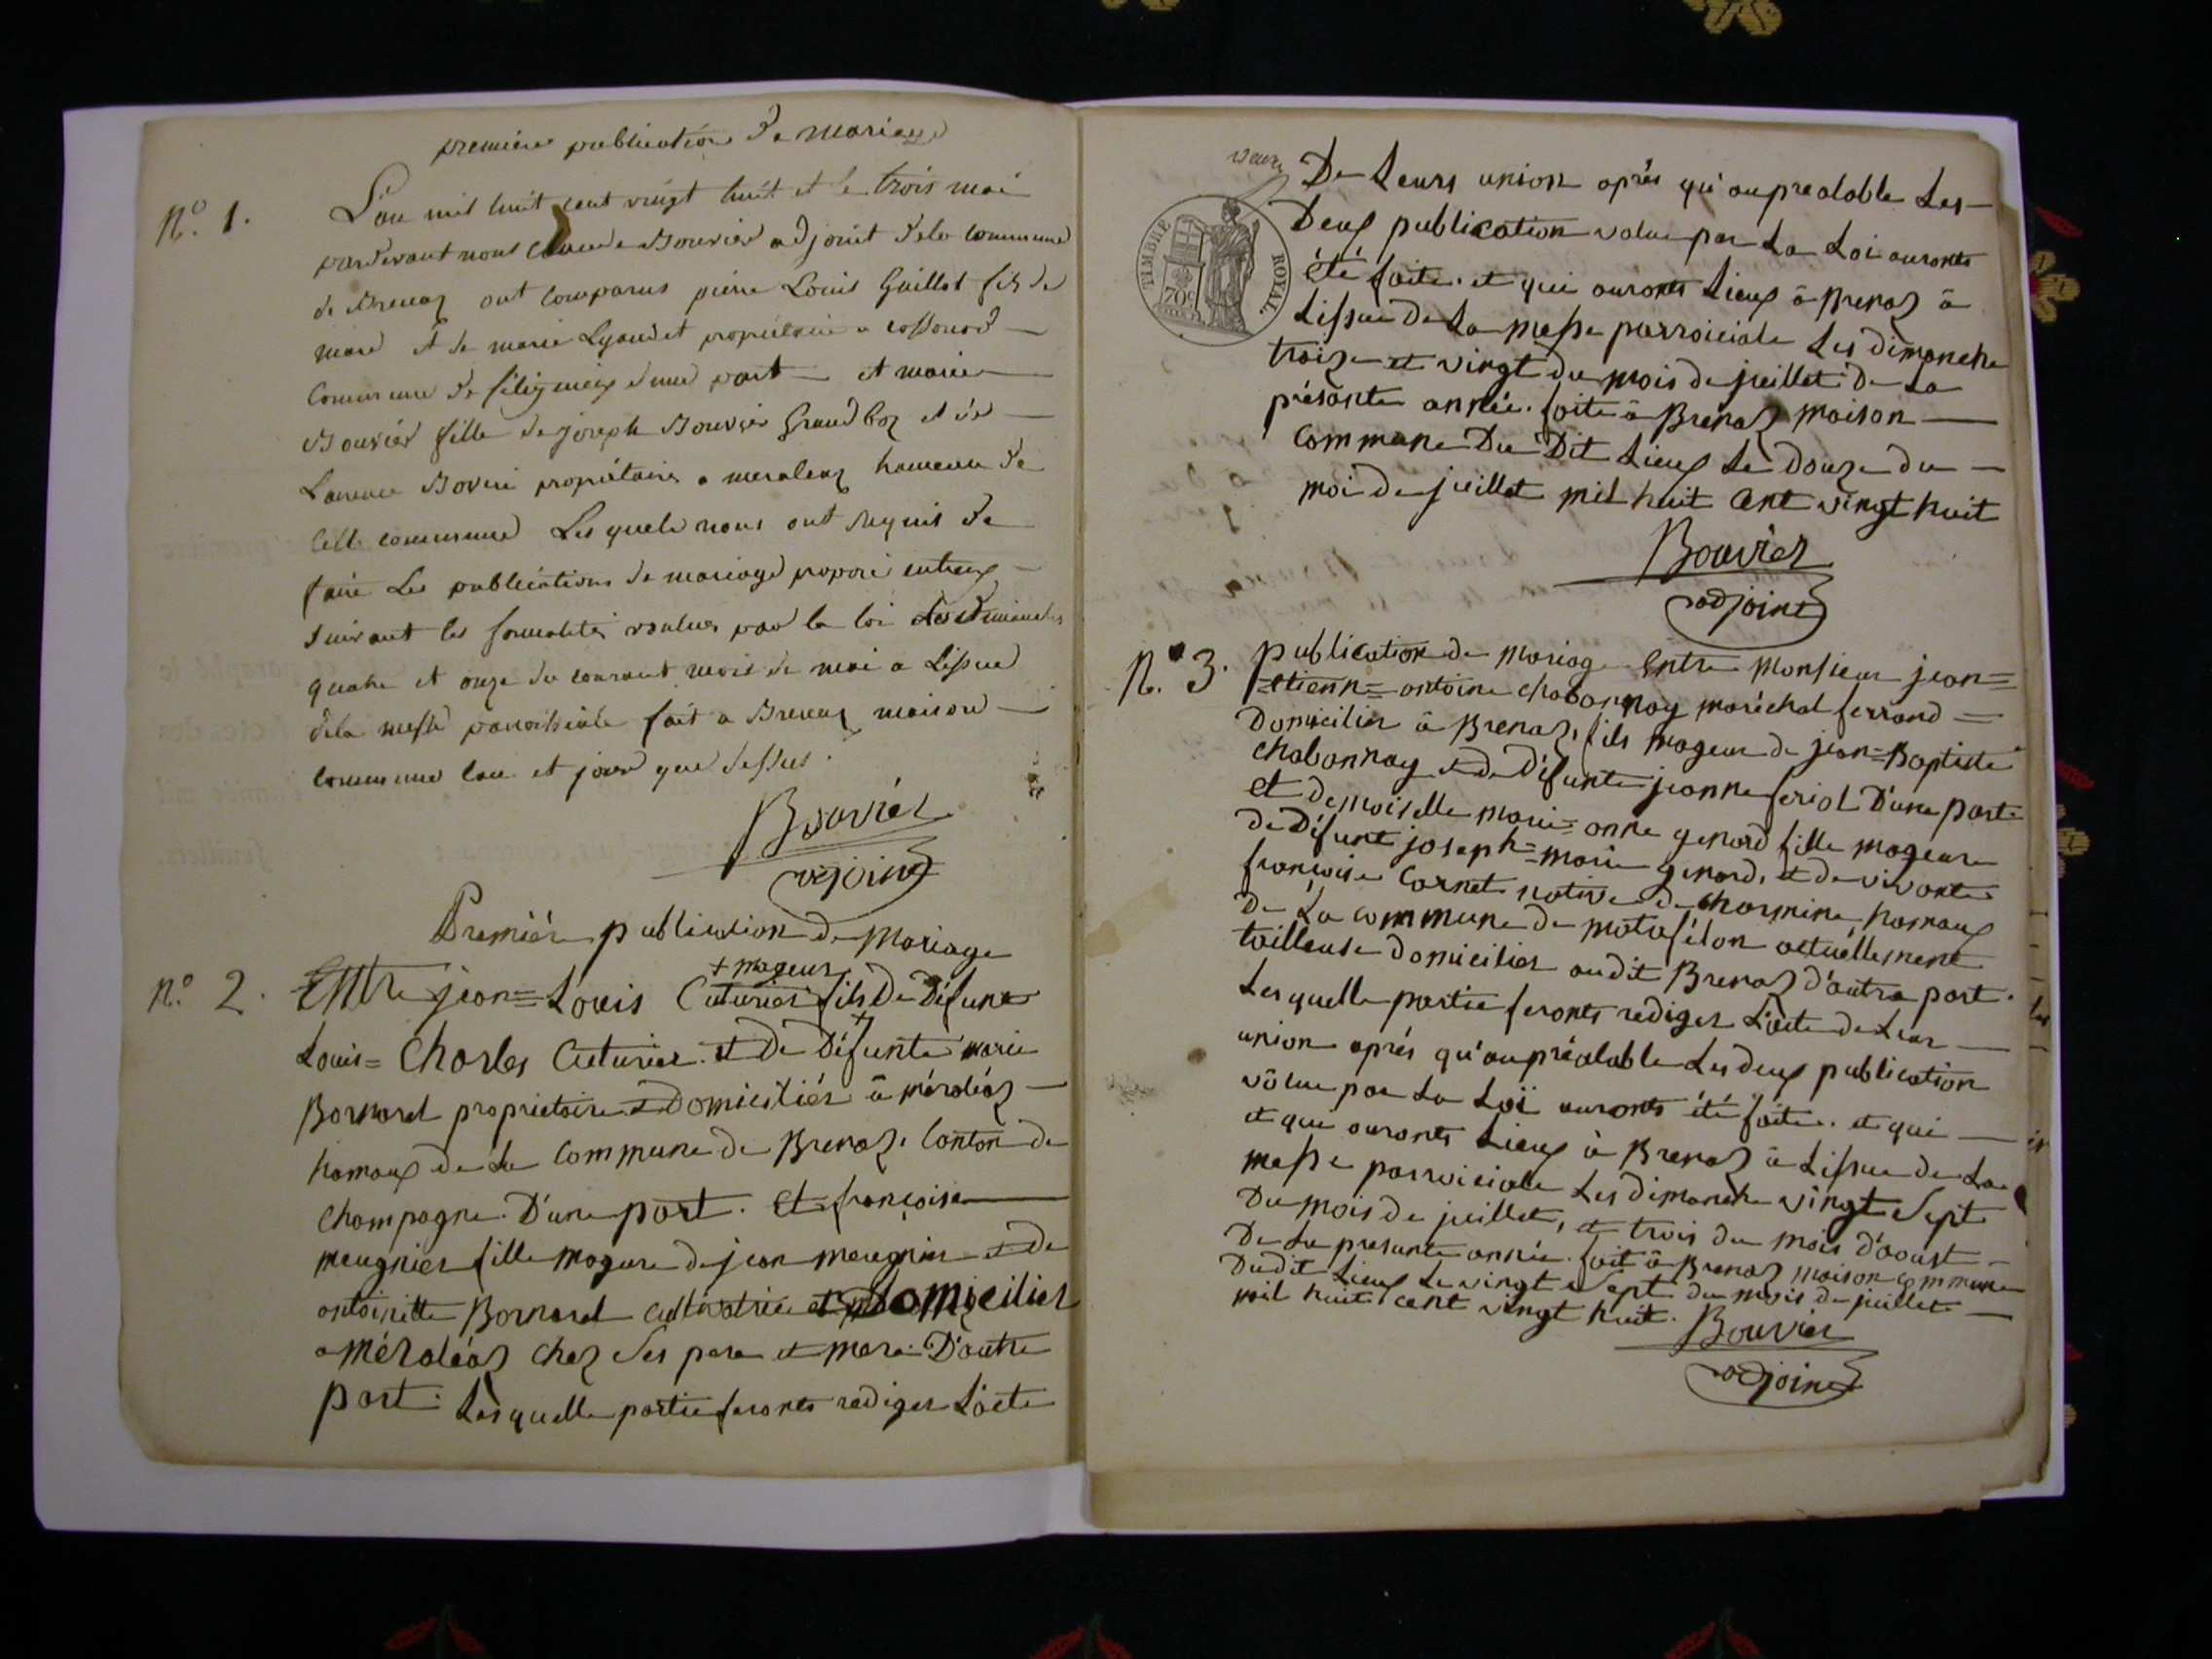 première publication de mariage
N.o 1. L'an mil huit cent vingt huit et le trois mai
pardevant nous Claude Bouvier adjoint dela commune
de Brenaz ont comparus pierre Louis Guillot fils de
et de marie Lyaudet propriétaire a cossonod
commune de d'une part et marie
Bouvier fille de joseph Bouvier et de
Laurence Boveri propriétaires a meraleaz hameau de
Cette commune Lesquels nous ont requis de
faire Les publications de mariage proposé entreux
suivant les formalités voulues par la loi les dimanches
quatre et onze du courant mois de mai a Lissue
dela messe paroissiale fait a Brenaz maison
commune lan et jour que dessus.
Bouvier
adjoint
Premiére publication de Mariage
+ mageur
n.o 2. Entre jean=Louis Cuturier fils De Défunt
Louis=Charles Cuturier et De Défunte marie
Bornard proprietaire et Domicilier â mérâléaz
hamaux de La Commune de Brenaz. Canton de
Champagne. D'une part. et françoise
meugnier fille mageure de jean meugnier et de
antoinette Bornard cultivatrice et Domicilier
a méraléaz chez ses pere et mere D'autre
part. Lesquelle partie feronts rediger L'acte
De Leurs union après qu'aupréalable Les
Deux publication volue par La Loi auronts
été faite. et qui auronts Lieux â Brenaz â
Lissue De La messe parroiciale Les dimanche
treize et vingt du mois de juillet de La
présante année. faite â Brenaz maison
commune Du Dit Lieux Le douze du
moi de juillet mil huit Cent vingt huit
TIMBRE ROYAL.
70c
Bouvier
adjoint
N. 3. publication de Mariage Entre Monsieur jean=
=etienne= antoine chabonnay maréchal ferrand
Domicilier â Brenaz, fils mageur de jean=Baptiste
chabonnay et de Défunte jeanne feriol D'une part.
et demoiselle marie=anne genard fille mageure
de Défunt joseph=marie genard, et de vivante
françoise Carnet native de charmine, hamaux
De La commune de matafélon actuéllement
tailleuse domicilier audit Brenaz d'autre part.
Lesquelle partie feronts rediger L'acte de Leur
union aprés qu'aupréalable Les deux publication
vôlue par La Loi auronts été faite. et qui
et qui auronts Lieux â Brenaz â Lissue de La
messe parroiciale Les dimanche vingt Sept
Du mois de juillet, et trois du mois d'aoust
De La presante année. fait â Brenaz maison commune
Dudit Lieux Le vingt Sept du mois de juillet
mil huit cent vingt huit.
Bouvier
adjoint